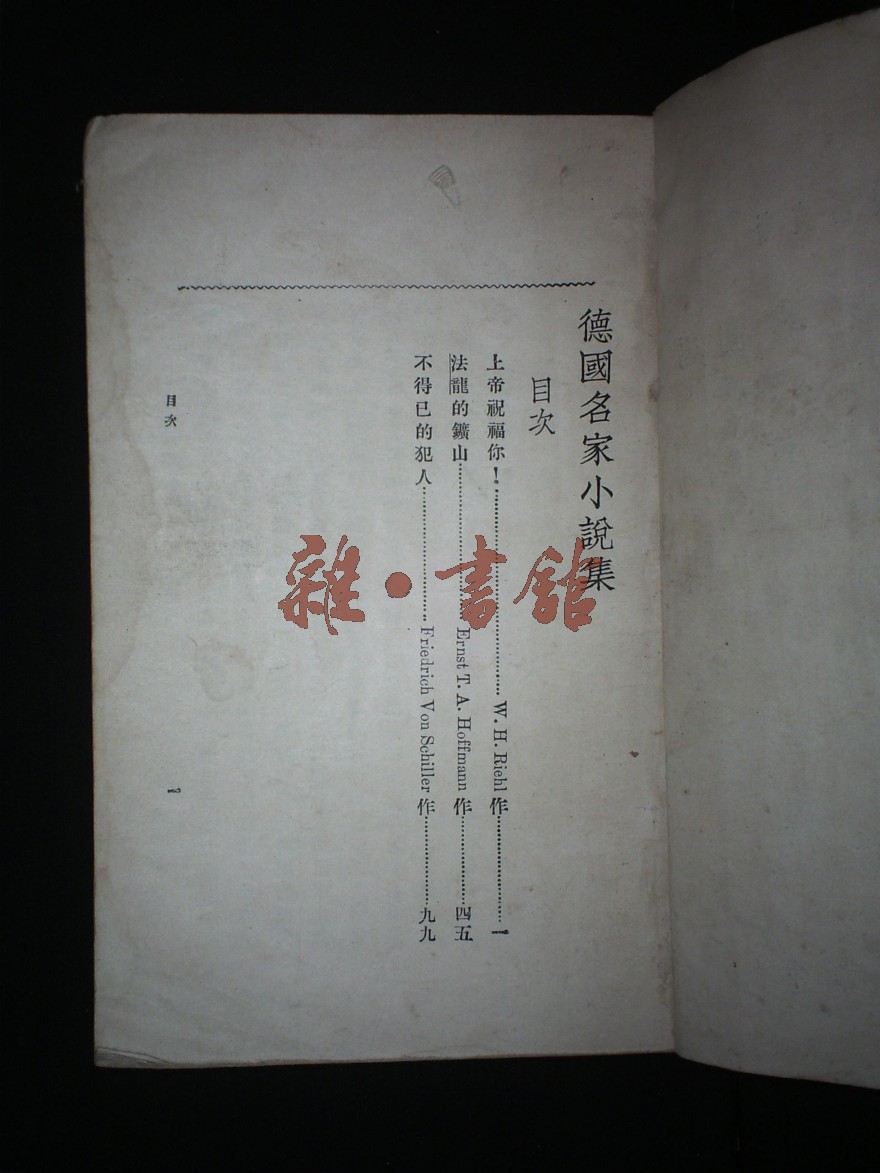 德國名家小說集
目次
上帝祝福你！……………………………W. H. Riehl 作……………一
法龍的鑛山……………………Ernst T. A. Hoffmann 作…………四五
不得已的犯人…………………Friedrich Von Schiller 作…………九九
目次
1
雜·書舘